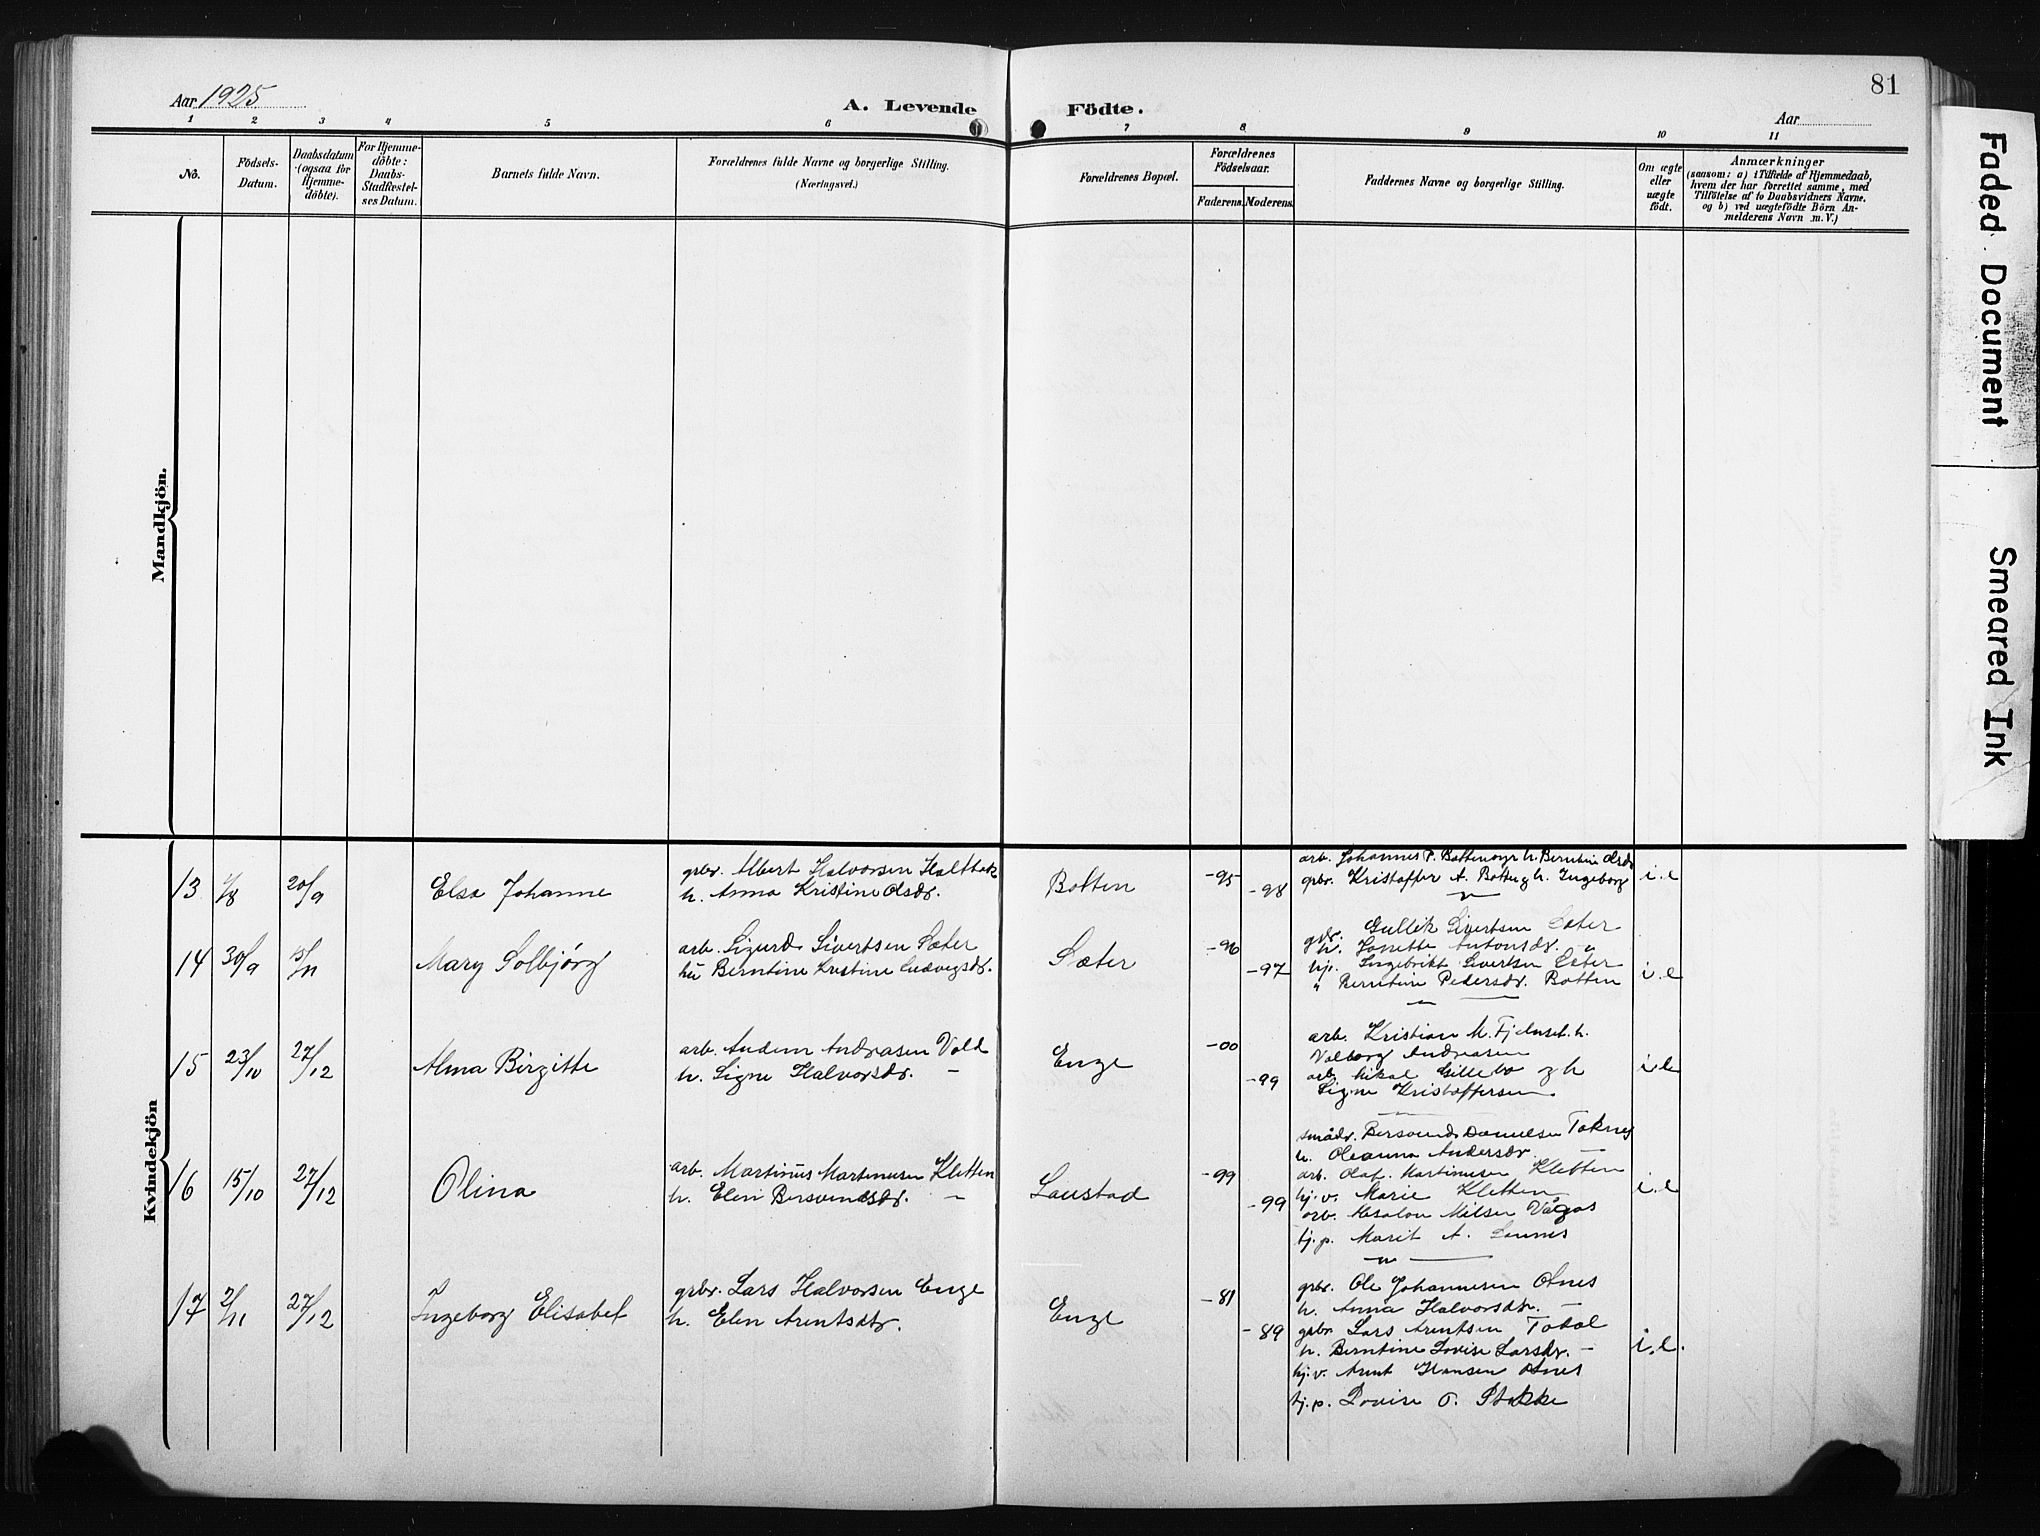 81
Aar 1925
A. Levende
Födte.
Aar
1 2 3 4 5 6 7 8 9 10 11
No.
Födsels-
Datum.
Daabsdatum
(ogsaa for
Hjemme-
döbte).
For Hjemme-
döbte:
Daabs-
Stadfæstel-
ses Datum.
Barnets fulde Navn.
Forældrenes fulde Navne og borgerlige Stilling.
(Næringsvei.)
Forældrenes Bopæl.
Forældrenes
Födselsaar.
Faderens.
Moderens.
Faddernes Navne og borgerlige Stilling.
Om ægte
eller
uægte
födt.
Anmærkninger
(saasom: a) i Tilfælde af Hjemmedaab,
hvem der har forrettet samme, med
Tilföielse af to Daabsvidners Navne,
og b) ved uægtefödte Börn An-
melderens Navn m. V.)
Mandkjön.
Kvindekjön
13
1/8
20/9
Elsa Johanne
grbr. Albert Halvorsen
h. Anna Kristine Olsdr.
Botten
-95
-98
arb. Johannes P. h. Berntine Olsdr
grbr. Kristoffer A. Botten og h. Ingeborg
i.e
14
30/9
15/11
Mary Solbjørg
arb. Sigurd Sivertsen Sæter
hu Berntine Kristine Ludvigsdr.
Sæter
-96
-97
grbr. Gullik Sivertsen Sæter
h. Antonsdr. "
Ingebrikt Sivertsen Sæter
" Berntine Pedersdr. Botten
i.e
15
23/10
27/12
Alma Birgitte
arb. Andreasen Vold
h. Signe Halvorsdr. -
Enge
-00
-99
arb. Kristian M. h.
Valborg Andreasen
arb. Mikal Gilleбo og h
Signe Kristoffersen
i.e
16
15/10
27/12
Olina
arb. Martinus Martinusen Kletten
h. Elen Bersvendsdr. -
Laustad
-99
-99
småbr. Bersvend Danielsen Taknes
h. Oleanna Andersdr. -
arb. Olaf Martinusen Kletten
hj.v. Marie Kletten
arb. Absalon Nilsen Vågos
tj.p. Marit A.
i.e
17
2/11
27/12
Ingeborg Elisabet
grbr. Lars Halvorsen Enge
h. Elen Arentsdtr.
Enge
-81
-89
grbr. Ole Johannesen Otnes
h. Anna Halvorsdtr. -
grbr Lars Arentsen Todal
h. Berntine Lovise Larsdr. -
hj.v. Arnt Hansen Otnes
tj.p. Lovise O. Stokke
i.e.
Faded Document
Smeared Ink